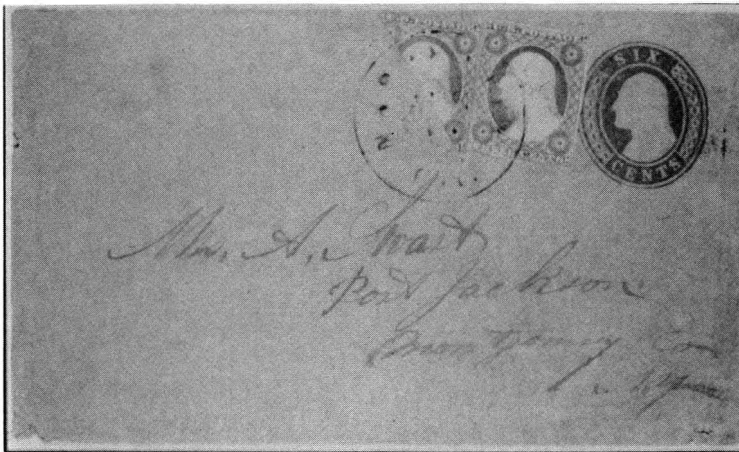 SIX
CENTS
Mr. A. Swart
Port Jackson
Montgomery Co
N.Y.